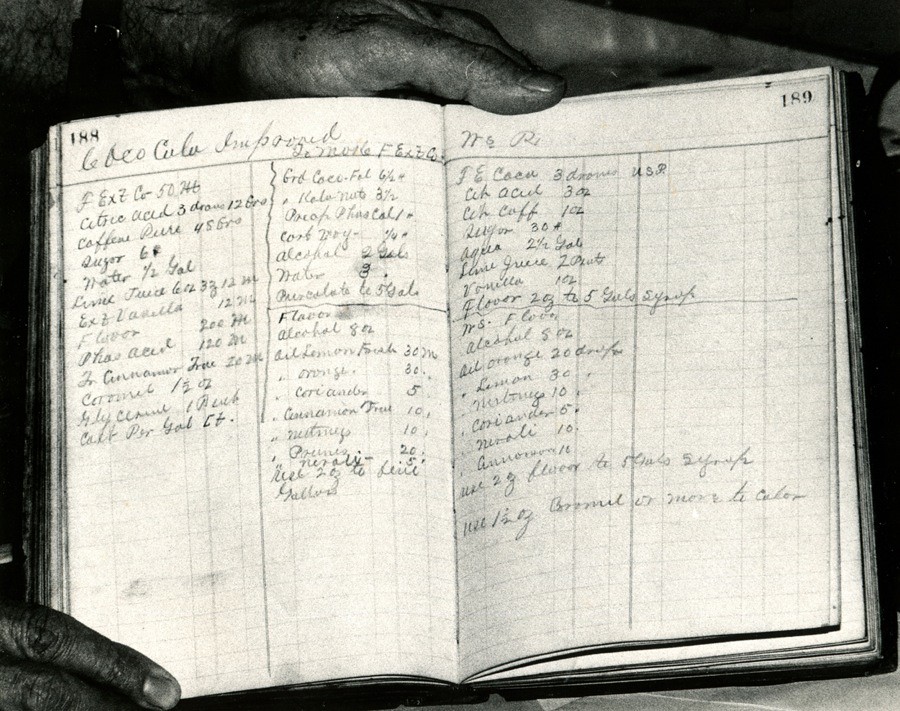 188
Coco Cola Improved
To Make F Ext Co.
F Ext Co 50 M
Citric acid 3 drams 12 Grs
Caffine Pure 48 Grs
Sugor 6 #
Water 1/2 Gal
Lime Juice 6 oz 3 12 m
Ext Vanilla 12 M
Flovor 200 M
Phos acid 120 M
Tr Cinnamon True 20 M
Coromel 1 1/2 oz
Glycerine 1 Pint
Cost Per Gal
Grd Coco
" Kola Nuts 3 1/2
Precip Phos Cal 1 "
Alcohol 2 Gals
Water 3 "
Percolate to 5 Gals
Flavor
Alcohol 8 oz
Oil Lemon Fresh 30 M
" orange 30 "
" Coriander 5 "
" Cinnamon True 10 "
" Nutmeg 10 "
" Prunes 20 "
" nerali 5 "
Use 2 oz to
Gallons
189
F E Coca 3 drams USP
Cit Acid 3 oz
Cit Caff 1 oz
Sugor 30 #
Aqua 2 1/2 Gal
Lime Juice 2 Pints
Vanilla 1 oz
Flavor 2 oz to 5 Gals Syrup
Alcohol 8 oz
Oil orange 20 drops
" Lemon 30 "
" Nutmeg 10 "
" Coriander 5 "
" Nerali 10 "
" Cinnamon 10
use 2 oz flavor to 5 Gals Syrup
use 1 1/2 oz or more to color